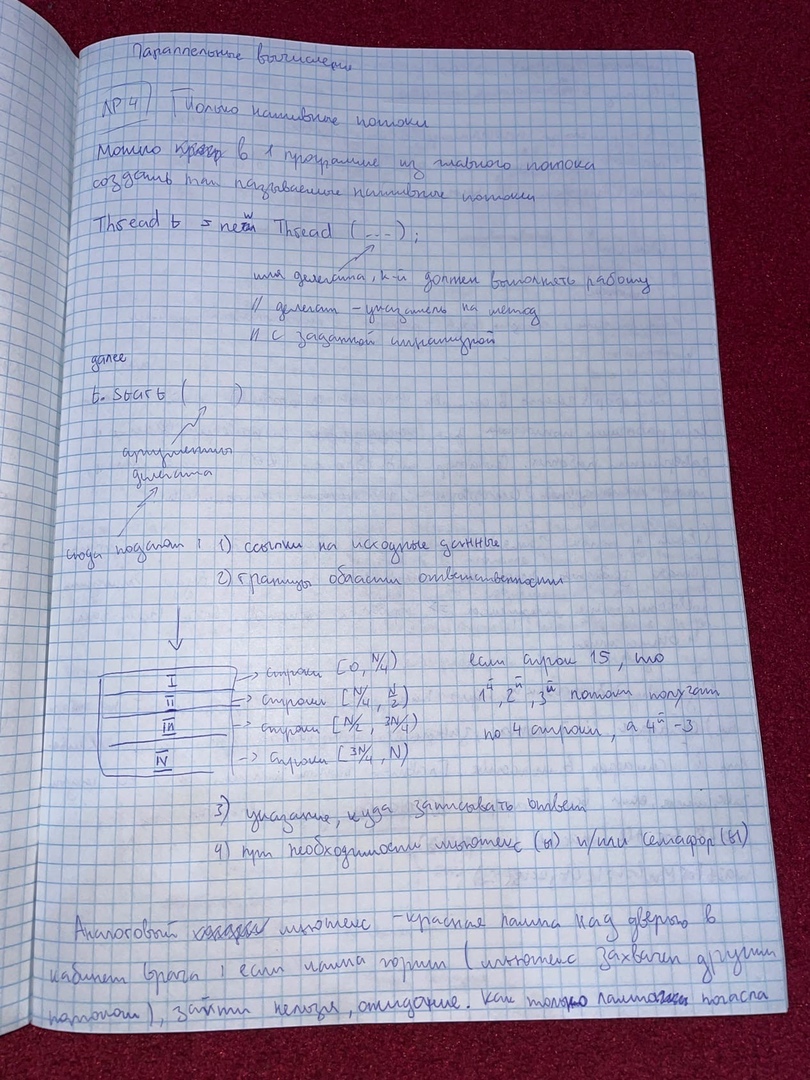 Параллельные вычисления
ЛР 4 Только нативные потоки
Можно в 1 программе из главного потока
создать так называемые нативные потоки
Thread t = new Thread (---);
имя делегата, к-й должен выполнять работу
// делегат - указатель на метод
// с заданной сигнатурой
далее
t. Start ( )
аргументы
делегата
сюда подают : 1) ссылки на исходные данные
2) границы области ответственности
I -> строки [0, N/4)
II -> строки [N/4, N/2)
III -> строки [N/2, 3N/4)
IV -> строки [3N/4, N)
если строк 15, то
1й, 2й, 3й потоки получат
по 4 строки, а 4й - 3
3) указание, куда записывать ответ
4) при необходимости мьютекс (ы) и/или семафор (ы)
Аналоговый мьютекс - красная лампа над дверью в
кабинет врача : если лампа горит (мьютекс захвачен другим
потоком), зайти нельзя, ожидание. Как только погасла